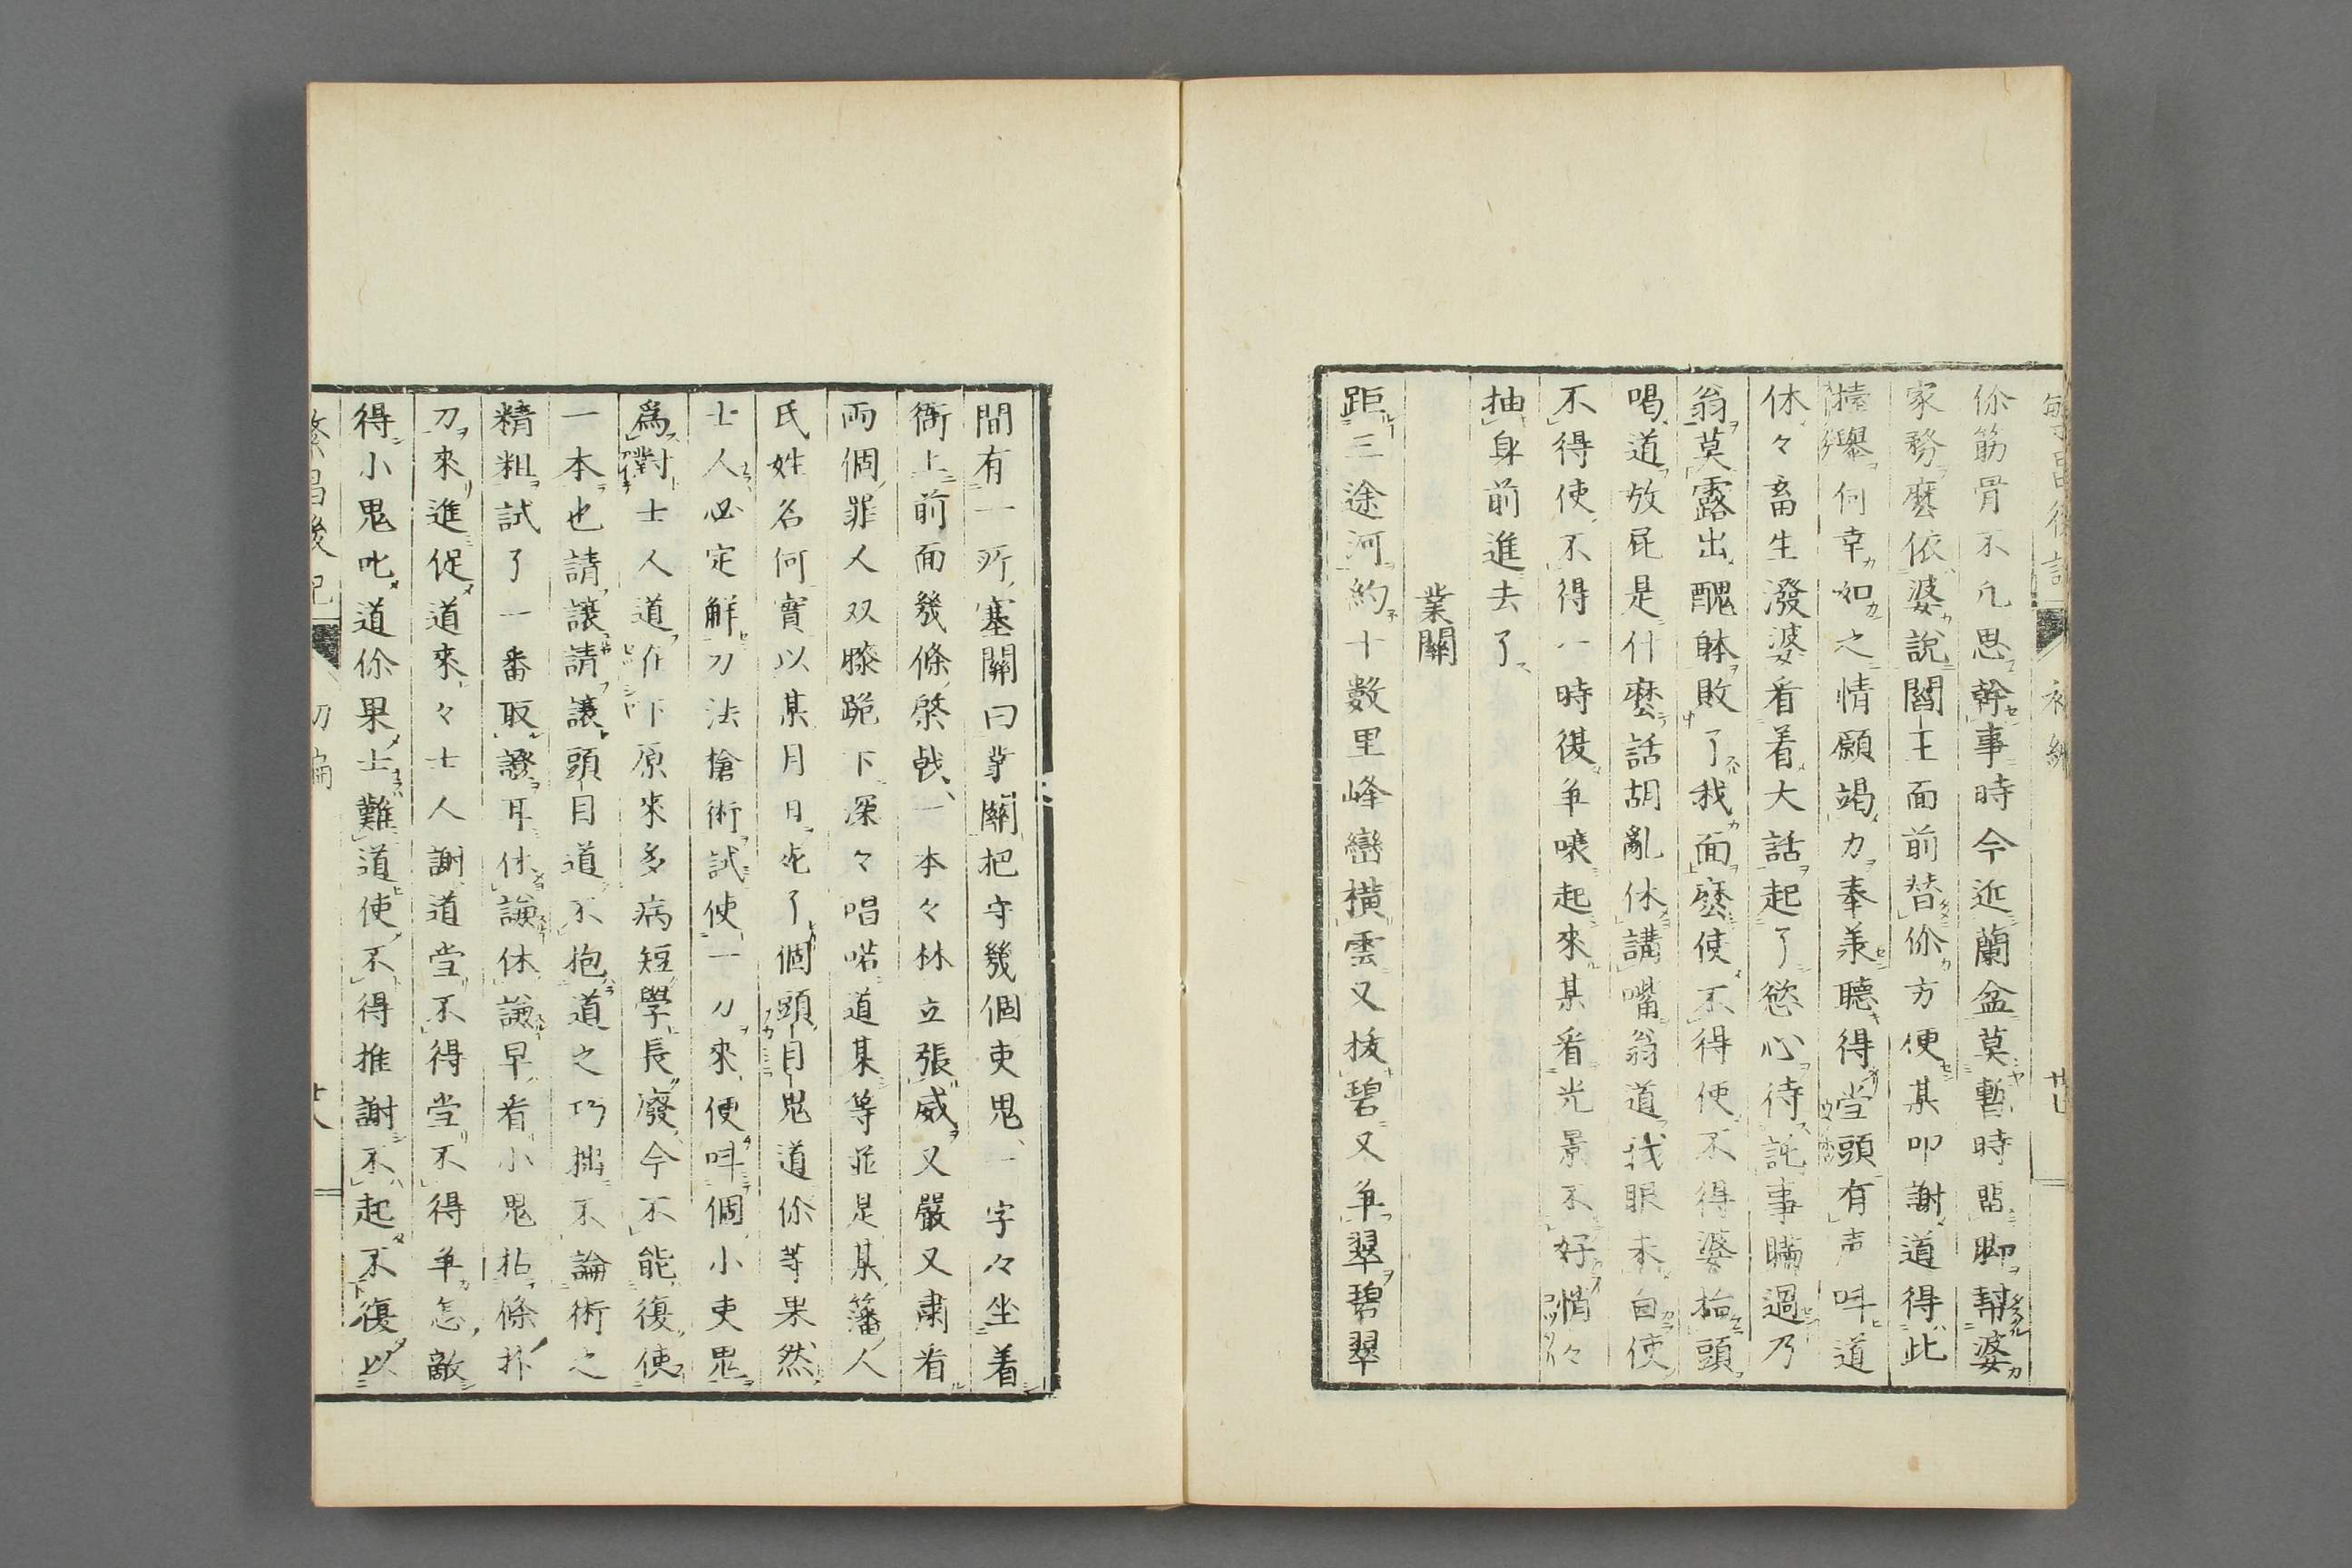 你筋骨不凡思幹事時今近蘭盆莫暫時閑脚幇婆
家務麼依婆說閻王面前替你方便某叩謝道得此
擡舉何幸如之情願竭力奉羕聽得堂頭有声呌道
休々畜生潑婆看着大話起了慾心待詫事瞞過乃
翁莫露出醜躰敗了我面麼使不得使不得婆掉頭
喝道放屁是什麼話胡亂休講嘴翁道我眼未自使
不得使不得一時復争嚷起來某看光景不好悄々
抽身前進去了
業關
距三途河約十數里峰巒橫雲又抜碧又争翠碧翠
間有一所塞關曰業關把守幾個吏鬼一字々坐着
衙上前面幾條棨戟一本々林立張威又嚴又肅看
両個罪人双膝跪下深々唱喏道某等並是某藩人
氏姓名何實以某月日死了個頭目鬼道你等果然
士人必定解刀法槍術試使一刀來便呌個小吏鬼
爲對士人道在下原來多病短學長廢今不能復使
一本也請讓請讓頭目道不抱道之巧拙不論術之
精粗試了一番取證耳休謙休謙早看小鬼拈條朴
刀來進促道來々士人謝道當不得當不得争怎敵
得小鬼叱道你果士難道使不得推謝不起不復以
繁昌後記 初編 廿八